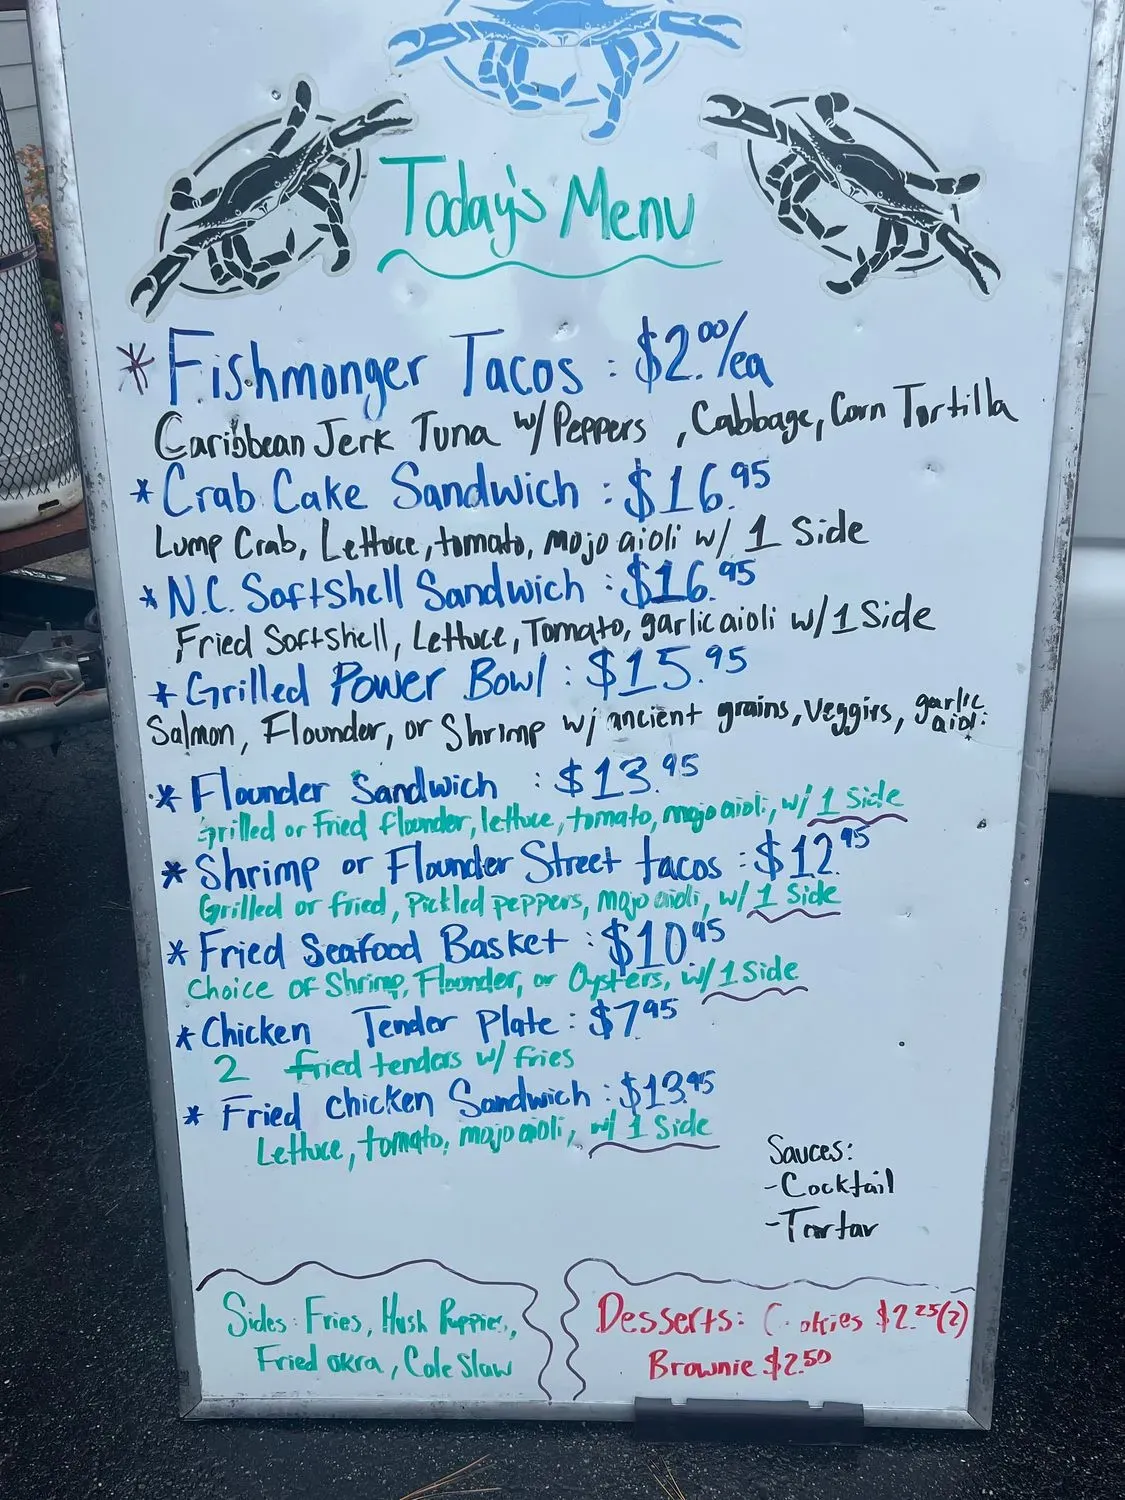 Today's Menu
* Fishmonger Tacos : $2.00/ea
Caribbean Jerk Tuna w/ Peppers , Cabbage, Corn Tortilla
* Crab Cake Sandwich : $16.95
Lump Crab, Lettuce, tomato, mojo aioli w/ 1 Side
* N.C. Softshell Sandwich : $16.95
Fried Softshell, Lettuce, Tomato, garlic aioli w/ 1 Side
* Grilled Power Bowl : $15.95
Salmon, Flounder, or Shrimp w/ ancient grains, Veggies, garlic aioli
* Flounder Sandwich : $13.95
Grilled or Fried flounder, lettuce, tomato, mojo aioli, w/ 1 Side
* Shrimp or Flounder Street tacos : $12.95
Grilled or fried, Pickled peppers, mojo aioli, w/ 1 Side
* Fried Seafood Basket : $10.95
Choice of Shrimp, Flounder, or Oysters, w/ 1 Side
* Chicken Tender Plate : $7.95
2 fried tenders w/ fries
* Fried chicken Sandwich : $13.95
Lettuce, tomato, mojo aioli, w/ 1 Side
Sauces:
-Cocktail
-Tartar
Sides: Fries, Hush Puppies,
Fried okra, Cole Slaw
Desserts: Cookies $2.25(2)
Brownie $2.50